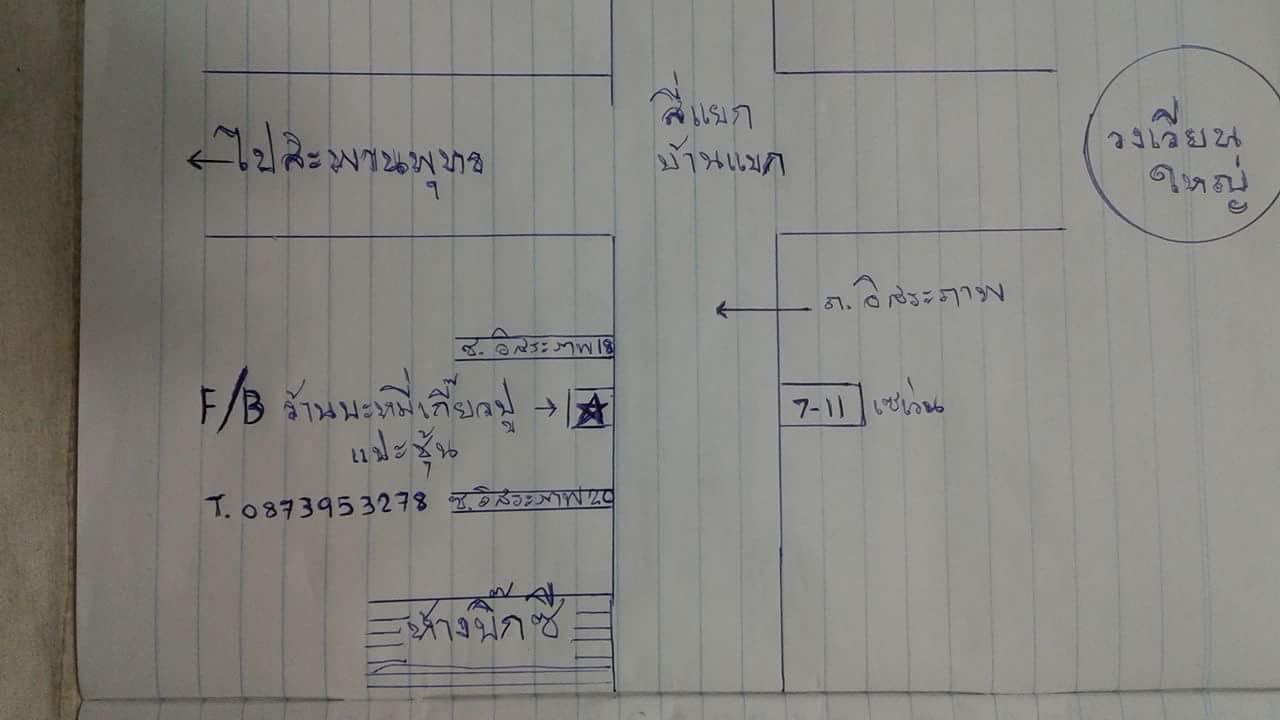 สี่แยก
บ้านแขก
←ไปสะพานพุทธ
วงเวียน
ใหญ่
← ถ. อิสระภาพ
ซ. อิสระภาพ 18
F/B ร้านบะหมี่เกี๊ยวปู →
แปะซุ้น
7-11 เซเว่น
T. 0873953278
ซ. อิสระภาพ 20
ห้างบิ๊กซี